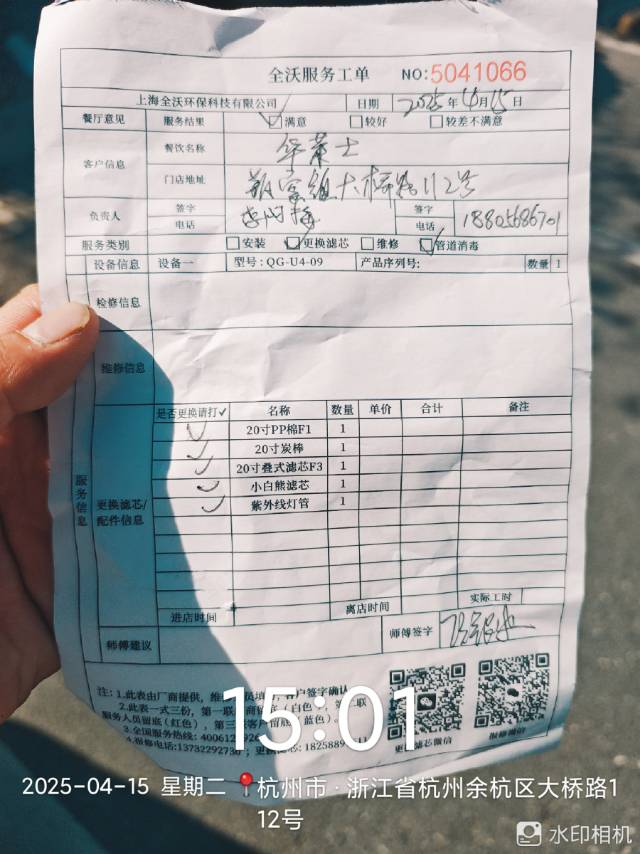 全沃服务工单 NO:5041066
上海全沃环保科技有限公司 日期 2025年4月15日
餐厅意见 服务结果 ☑满意 □较好 □较差不满意
客户信息 餐饮名称 华莱士
门店地址 大桥路112号
负责人 签字 电话 签字 电话 18805686701
服务类别 □安装 ☑更换滤芯 □维修 ☑管道消毒
设备信息 设备一 型号:QG-U4-09 产品序列号: 数量 1
检修信息
维修信息
服务信息
更换滤芯/配件信息
是否更换请打✓ 名称 数量 单价 合计 备注
✓ 20寸PP棉F1 1
✓ 20寸炭棒 1
✓ 20寸叠式滤芯F3 1
✓ 小白熊滤芯 1
✓ 紫外线灯管 1
进店时间 离店时间 实际工时
师傅建议 师傅签字
注:1.此表由厂商提供,维 客户签字确认
2.此表一式三份,第一联 (白色),
服务人员留底(红色),第三 客户留底(蓝色).
3.全国服务热线:400612
4.报修电话:13732292730 更换滤芯:1825889
更换滤芯微信 报修微信
15:01
2025-04-15 星期二 杭州市·浙江省杭州余杭区大桥路1
12号
水印相机